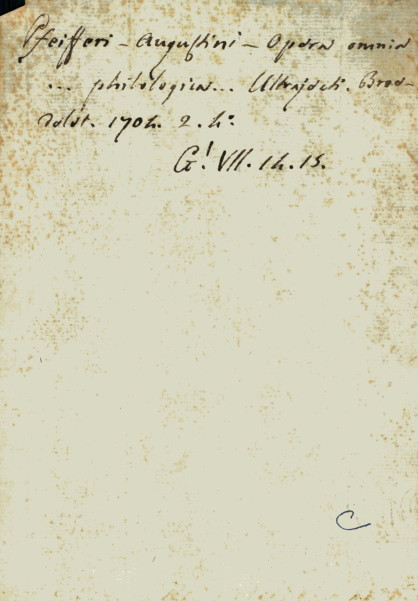 Pfeifferi - Augustini - Opera omnia
... philologica... Ultrajecti. Broe-
delet. 1704. 2. 4°.
G! VII. 14. 15.
C